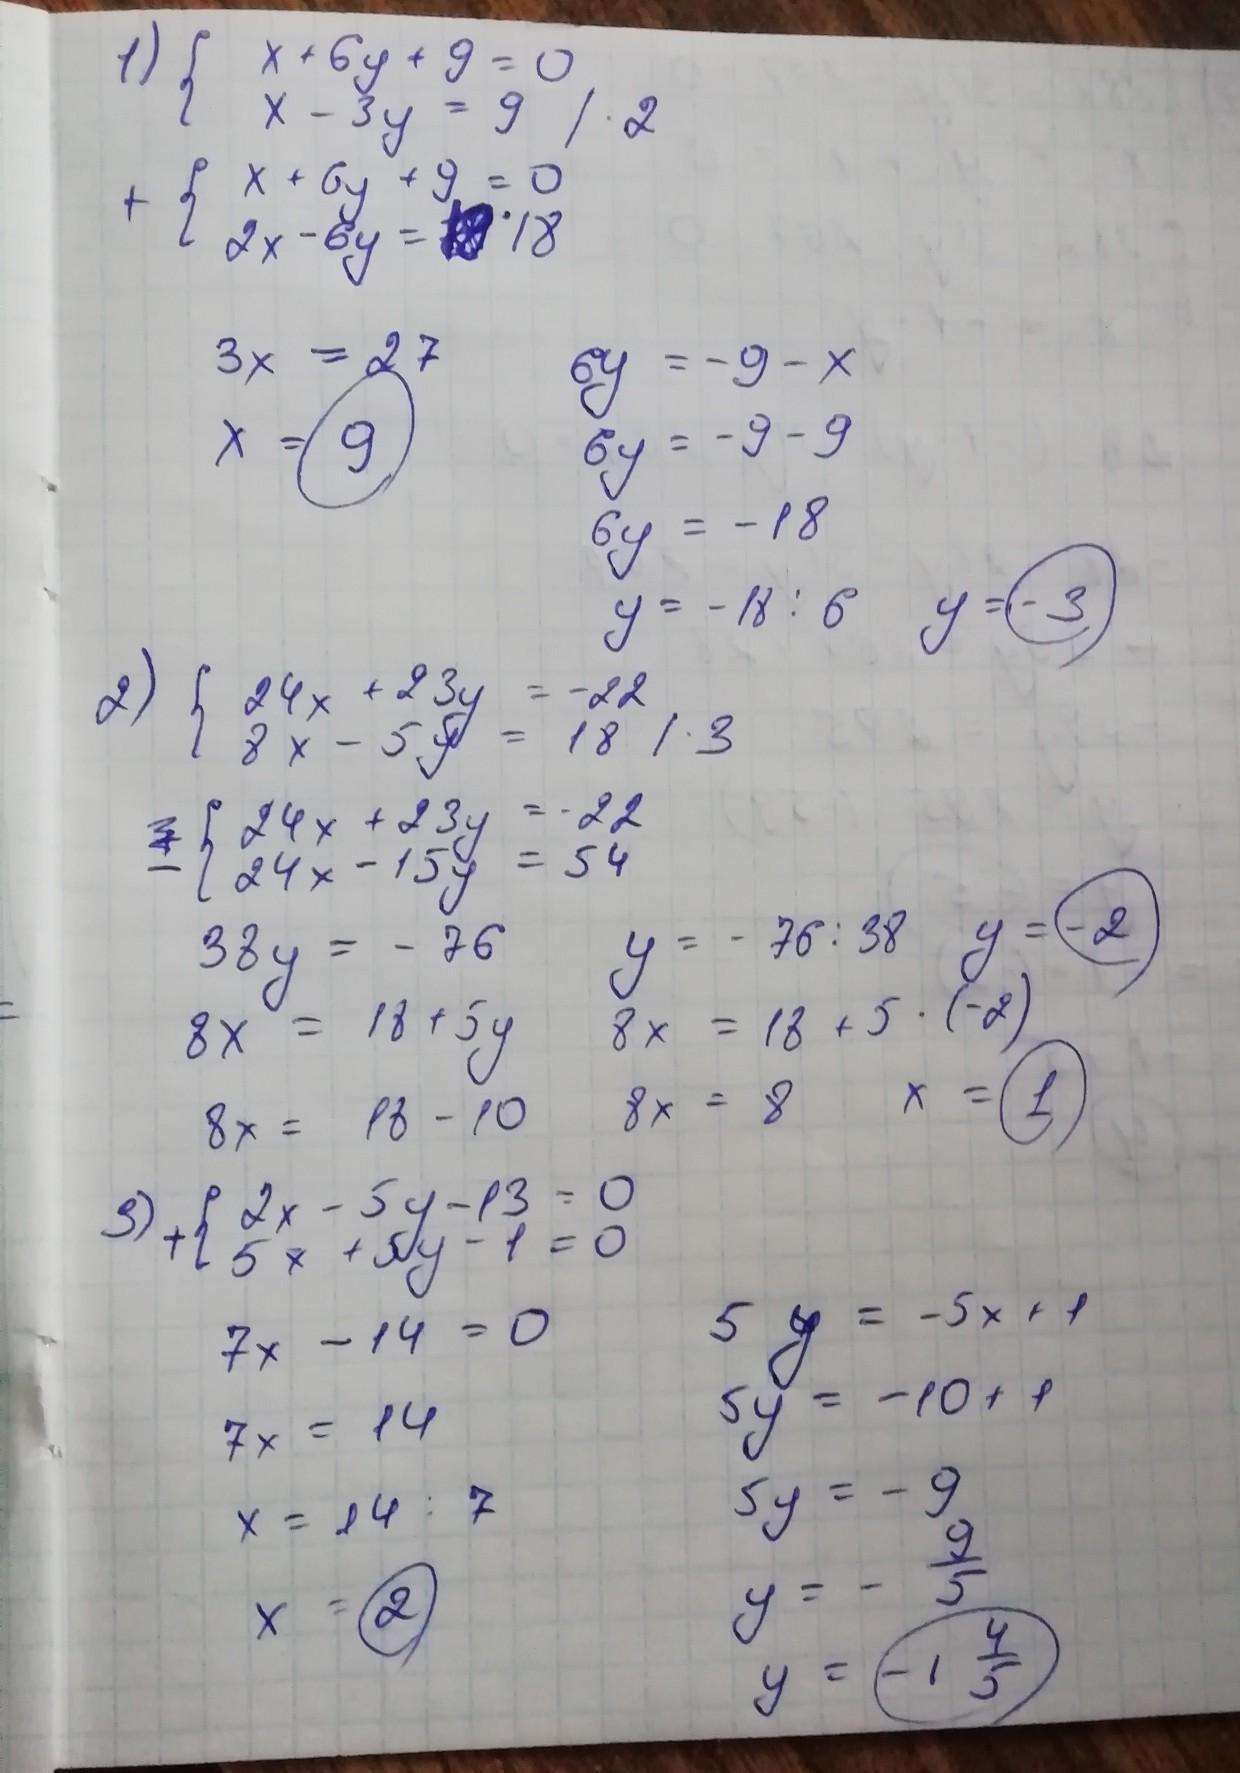 1) { x + 6y + 9 = 0
x - 3y = 9 / · 2
+ { x + 6y + 9 = 0
2x - 6y = 18
3x = 27
x = 9
6y = -9 - x
6y = -9 - 9
6y = -18
y = -18 : 6 y = -3
2) { 24x + 23y = -22
8x - 5y = 18 / · 3
- { 24x + 23y = -22
24x - 15y = 54
38y = -76 y = -76 : 38 y = -2
8x = 18 + 5y 8x = 18 + 5 · (-2)
8x = 18 - 10 8x = 8 x = 1
3) + { 2x - 5y - 13 = 0
5x + 5y - 1 = 0
7x - 14 = 0
7x = 14
x = 14 : 7
x = 2
5y = -5x + 1
5y = -10 + 1
5y = -9
y = - 9/5
y = -1 4/5